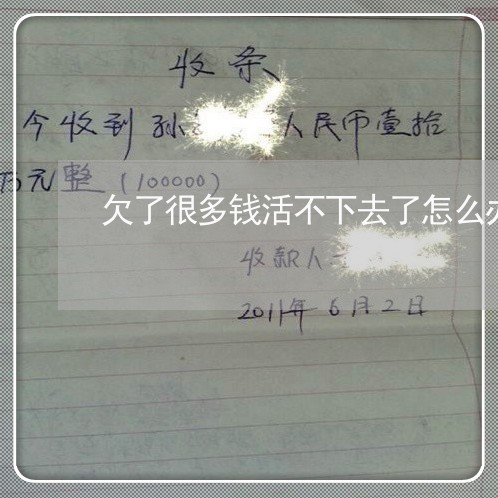 收条
今收到孙人民币壹拾
万元整（100000）
欠了很多钱活不下去了怎么办
收款人
2011年6月2日